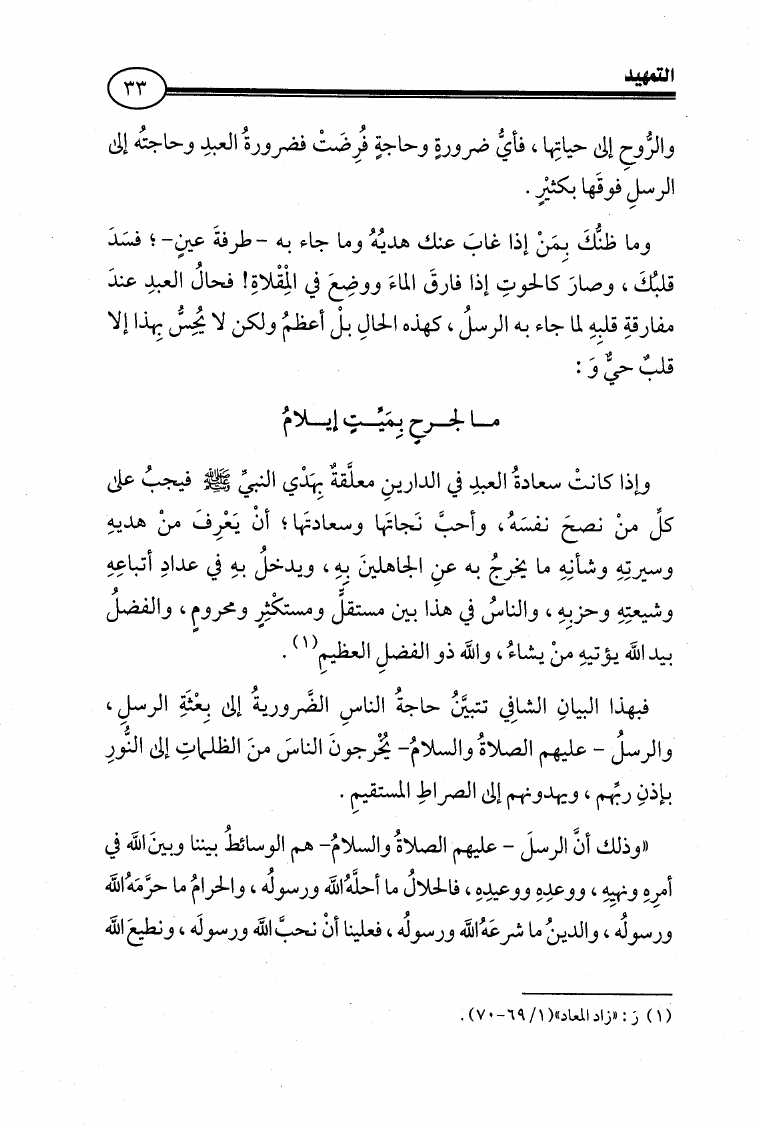 التمهيد
٣٣
والرُّوحِ إلىٰ حياتِها ، فأيُّ ضرورةٍ وحاجةٍ فُرِضَتْ فضرورةُ العبدِ وحاجتُه إلىٰ
الرسلِ فوقَها بكثيْرٍ .
وما ظنُّكَ بِمَنْ إذا غابَ عنك هديُهُ وما جاء به -طرفةَ عينٍ- ؛ فسَدَ
قلبُكَ ، وصارَ كالحوتِ إذا فارقَ الماءَ ووضِعَ في المِقْلاةِ! فحالُ العبدِ عندَ
مفارقةِ قلبِهِ لما جاء به الرسلُ ، كهذه الحالِ بلْ أعظمُ ولكن لا يُحِسُّ بِهذا إلا
قلبٌ حيٌّ وَ :
مـا لجـرحٍ بِمَيِّـتٍ إيـلامُ
وإذا كانتْ سعادةُ العبدِ في الدارينِ معلَّقةٌ بِهَدْي النبيِّ ﷺ فيجبُ علىٰ
كلِّ منْ نصحَ نفسَهُ، وأحبَّ نَجاتَها وسعادتَها؛ أنْ يَعْرِفَ منْ هديهِ
وسيرتِهِ وشأنِهِ ما يخرجُ به عنِ الجاهلينَ بِهِ ، ويدخلُ بهِ في عدادِ أتباعِهِ
وشيعتِهِ وحزبِهِ ، والناسُ في هذا بين مستقلٍّ ومستكثِرٍ ومحرومٍ ، والفضلُ
بيد الله يؤتيهِ منْ يشاءُ ، والله ذو الفضلِ العظيمِ(١) .
فبهذا البيانِ الشافِي تتبيَّنُ حاجةُ الناسِ الضَّروريةُ إلىٰ بِعْثَةِ الرسلِ ،
والرسلُ - عليهم الصلاةُ والسلامُ- يُخْرجونَ الناسَ منَ الظلماتِ إلى النُّورِ
بإذنِ ربِّهم ، ويهدونهم إلى الصراطِ المستقيمِ .
«وذلك أنَّ الرسلَ - عليهم الصلاةُ والسلامُ- هم الوسائطُ بيننا وبينَ الله في
أمرِه ونهيِهِ ، ووعدِهِ ووعيدِهِ ، فالحلالُ ما أحلَّهُ الله ورسولُه ، والحرامُ ما حرَّمَهُ الله
ورسولُه ، والدينُ ما شرعَهُ الله ورسولُه ، فعلينا أنْ نحبَّ الله ورسولَه ، ونطيعَ الله
(١) رَ : «زاد المعاد»(١/ ٦٩-٧٠).